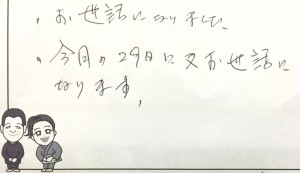 、お世話になりました
、今月の29日に又お世話に
なります、